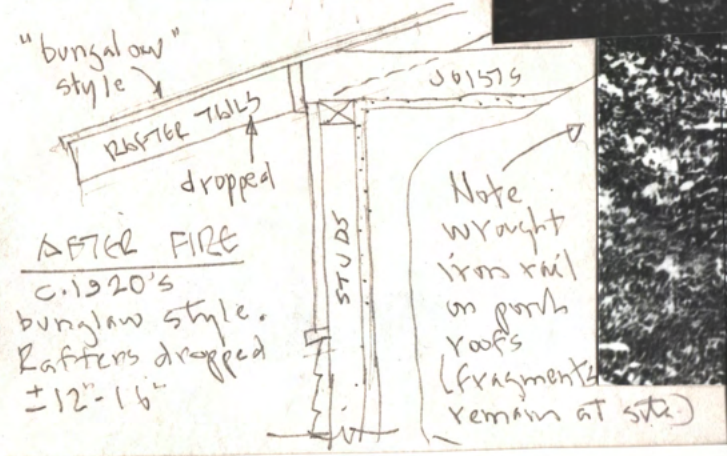 "bungalow"
style
RAFTER TAILS
dropped
JOISTS
STUDS
AFTER FIRE
c.1920's
bunglaw style.
Rafters dropped
±12"-16"
Note
wrought
iron rail
on porch
roofs
(fragments
remain at site)